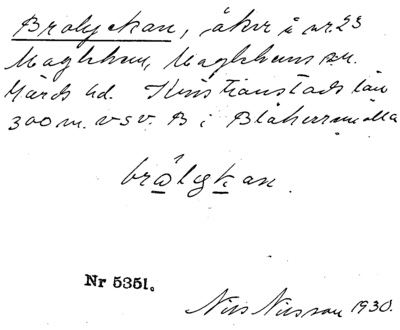 Brolyckan, åker å nr. 23
Maglehem, Maglehems sn.
Gärds hd. Kristianstads län
300 m. v.s.v. B i Blåherremölla
bro̊lykan.
Nr 5351.
Nils Nilsson 1930.